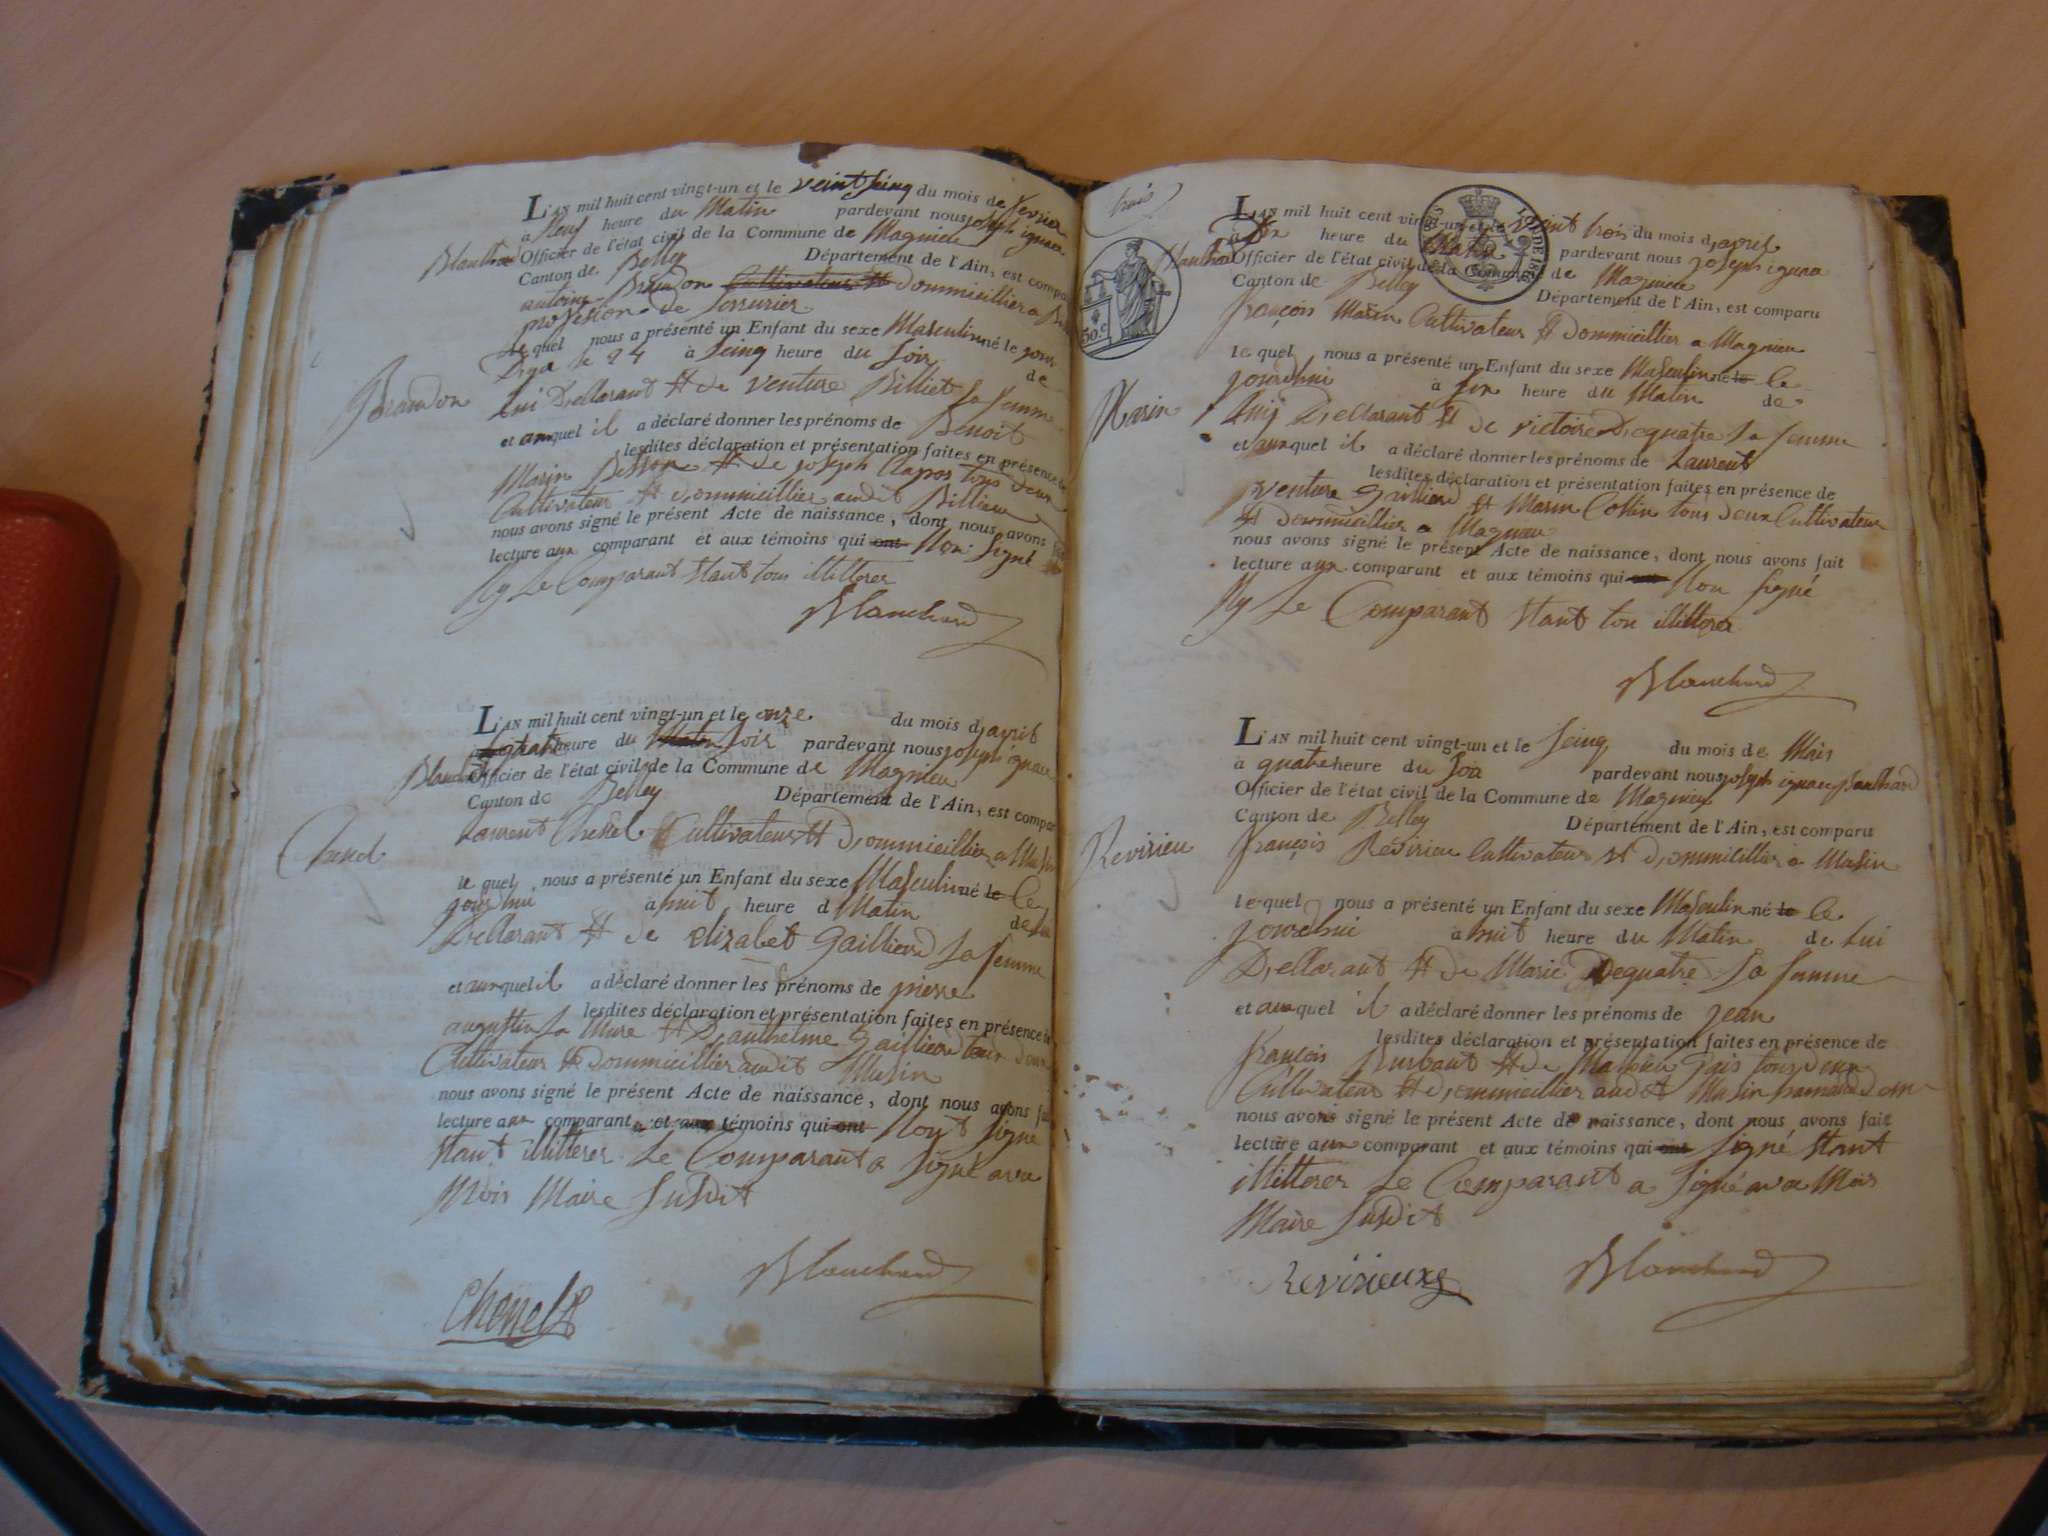 L'AN mil huit cent vingt-un et le veint seinq du mois de fevrier
à Neuf heure du Matin pardevant nous joseph ignace
Blanchard Officier de l'état civil de la Commune de Magnieu
Canton de Belley Département de l'Ain, est compa
antoine Brandon Cultivateur et dommicillier a
profession de Serrurier
le quel nous a présenté un Enfant du sexe Masculin né le jour
le 24 à Seinq heure du Soir de
Brandon
Lui Dellarant et de venture Billiet Sa femme
et auquel il a déclaré donner les prénoms de Benoit
lesdites déclaration et présentation faites en présence de
Marin et de joseph tous deux
Cultivateur et dommicillier audit Billieu
nous avons signé le présent Acte de naissance, dont nous avons
lecture aux comparant et aux témoins qui ont Non Signé
Ny Le Comparant Stant tous illitterer
Blanchard
L'AN mil huit cent vingt-un et le onze du mois d'avril
à quatre heure du Matin Soir pardevant nous joseph ignace
Blanchard Officier de l'état civil de la Commune de Magnieu
Canton de Belley Département de l'Ain, est compar
Laurent Chenel Cultivateur et Dommicillier a Musin
Chenel
le quel nous a présenté un Enfant du sexe Masculin né le Ce
jourdhui à huit heure d Matin de Lui
Dellarant et de elizabet Gaillierd Sa femme
et auquel il a déclaré donner les prénoms de pierre
lesdites déclaration et présentation faites en présence de
augustin La Mure et D'anthelme Gaillierd tous deux
Cultivateur et Dommicillier audit Musin
nous avons signé le présent Acte de naissance, dont nous avons fait
lecture aux comparant et aux témoins qui ont Nont Signé
Stant illitterer Le Comparant a Signé avec
Mois Maire Susdit
Blanchard
Chenel
trois
L'AN mil huit cent vingt-un et le veint trois du mois d'avril
à Dix heure du Matin pardevant nous joseph ignace
Blanchard Officier de l'état civil de la Commune de Magnieu
Canton de Belley Département de l'Ain, est comparu
50 c.
françois Marin Cultivateur et Dommicillier a Magnieu
le quel nous a présenté un Enfant du sexe Masculin né le Ce
jourdhui à Six heure du Matin de
Marin
Luij Dellarant et de victoire Dequatre Sa femme
et auquel il a déclaré donner les prénoms de Laurent
lesdites déclaration et présentation faites en présence de
venture Gaillierd et Marin Collin tous deux Cultivateur
et Dommicillier a Magnieu
nous avons signé le présent Acte de naissance, dont nous avons fait
lecture aux comparant et aux témoins qui ont Non Signé
Ny Le Comparant Stant tou illitterer
Blanchard
L'AN mil huit cent vingt-un et le Seinq du mois de Mais
à quatre heure du Soir pardevant nous joseph ignace Blanchard
Officier de l'état civil de la Commune de Magnieu
Canton de Belley Département de l'Ain, est comparu
Revirieu
françois Revirieu Cultivateur et Dommicillier a Musin
le quel nous a présenté un Enfant du sexe Masculin né le Ce
jourdhui à huit heure du Matin de Lui
Dellarant et de Marie Dequatre Sa femme
et auquel il a déclaré donner les prénoms de jean
lesdites déclaration et présentation faites en présence de
françois et de tous deux
Cultivateur et Dommicillier audit Musin
nous avons signé le présent Acte de naissance, dont nous avons fait
lecture aux comparant et aux témoins qui ont Signé Stant
illitterer Le Comparant a Signé avec Mois
Maire Susdit
Revirieux
Blanchard